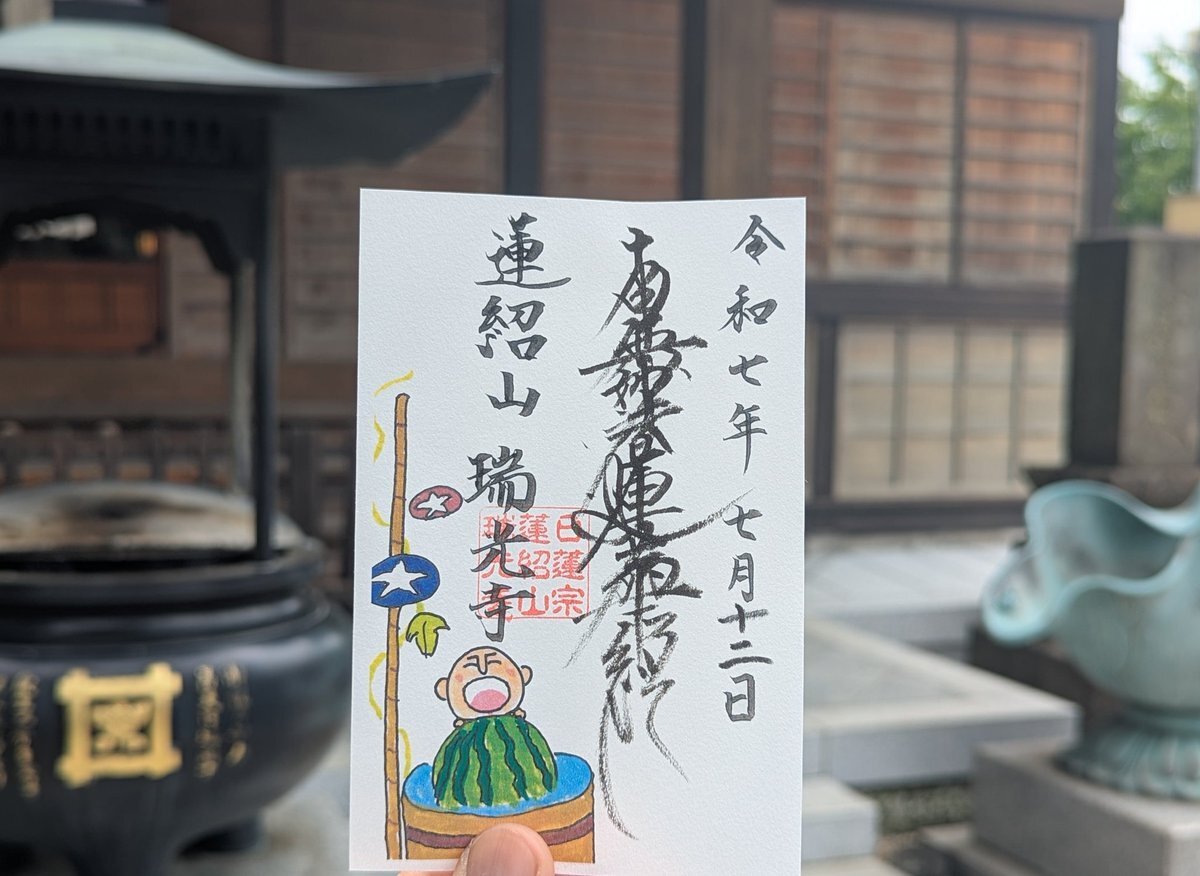 令和七年 七月十二日
南無妙法蓮華経
蓮紹山 瑞光寺
日蓮宗
蓮紹山
瑞光寺